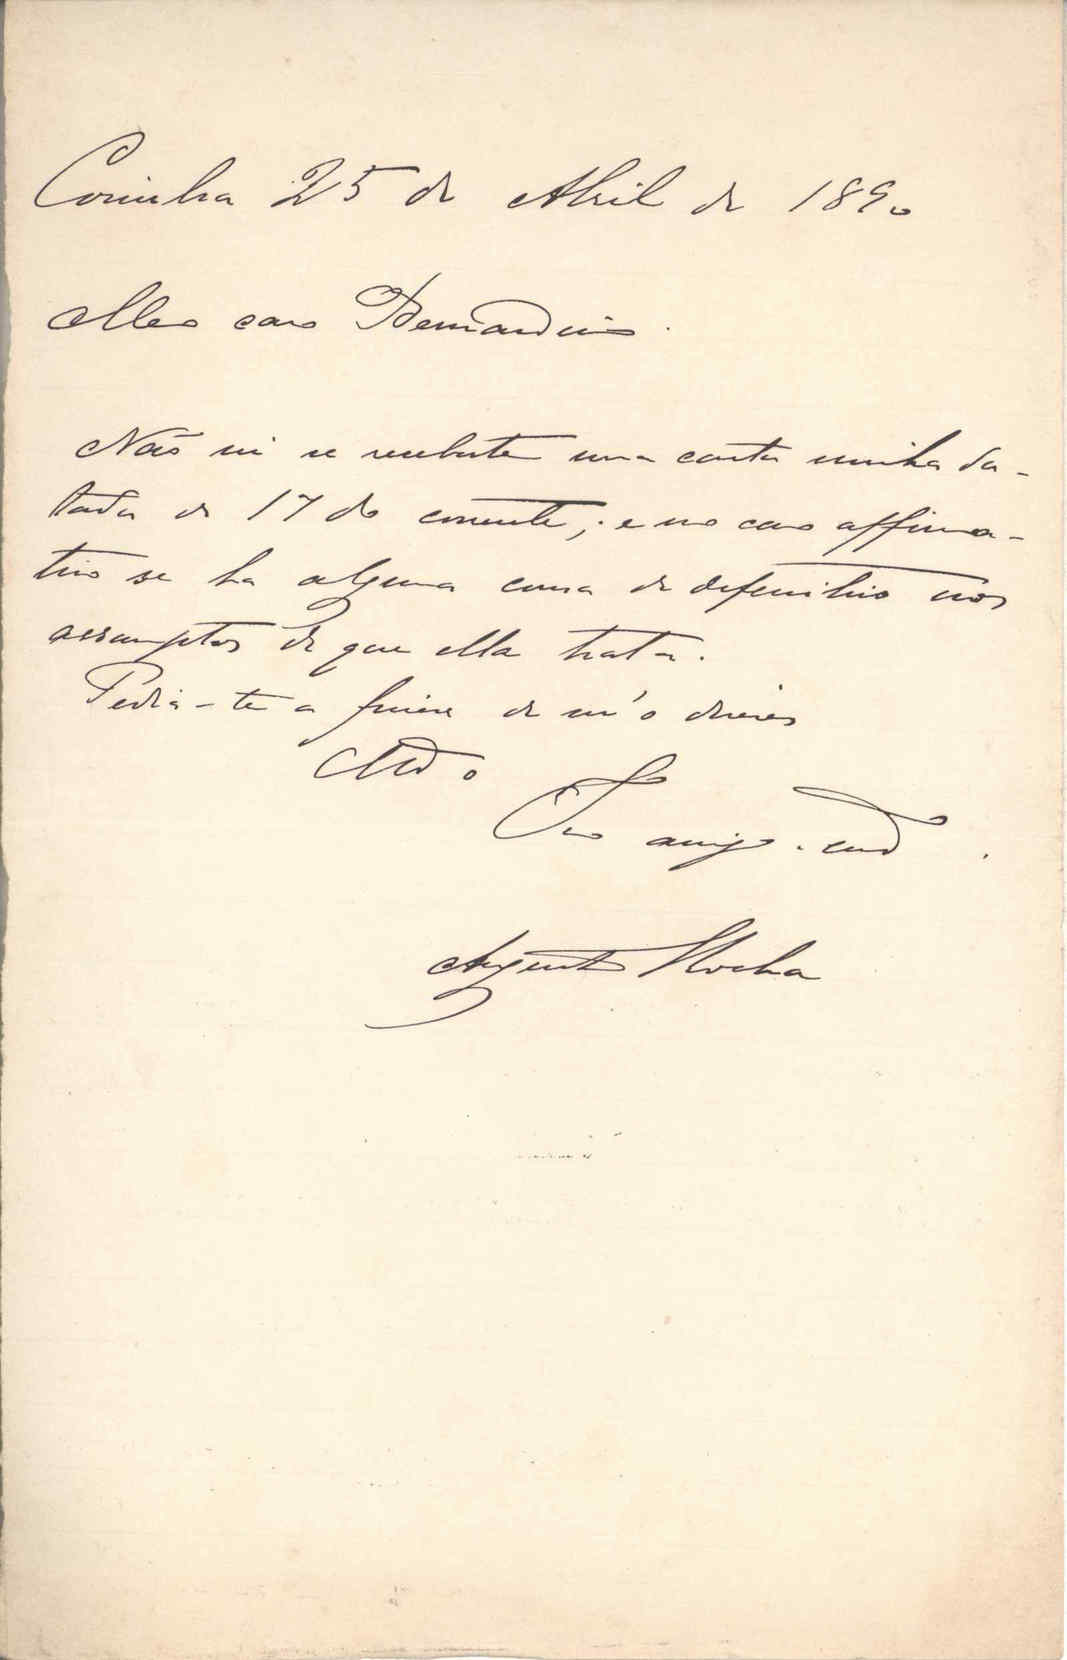 Coimbra 25 de Abril de 1890
Meu caro Bernardino.
Não sei se recebeste uma carta minha da-
tada de 17 do corrente; e no caso affirma-
tivo se ha alguma cousa de definitivo nos
assumptos de que ella trata.
Pedia-te a fineza de m'o dizeres
Teu amigo
Augusto Rocha